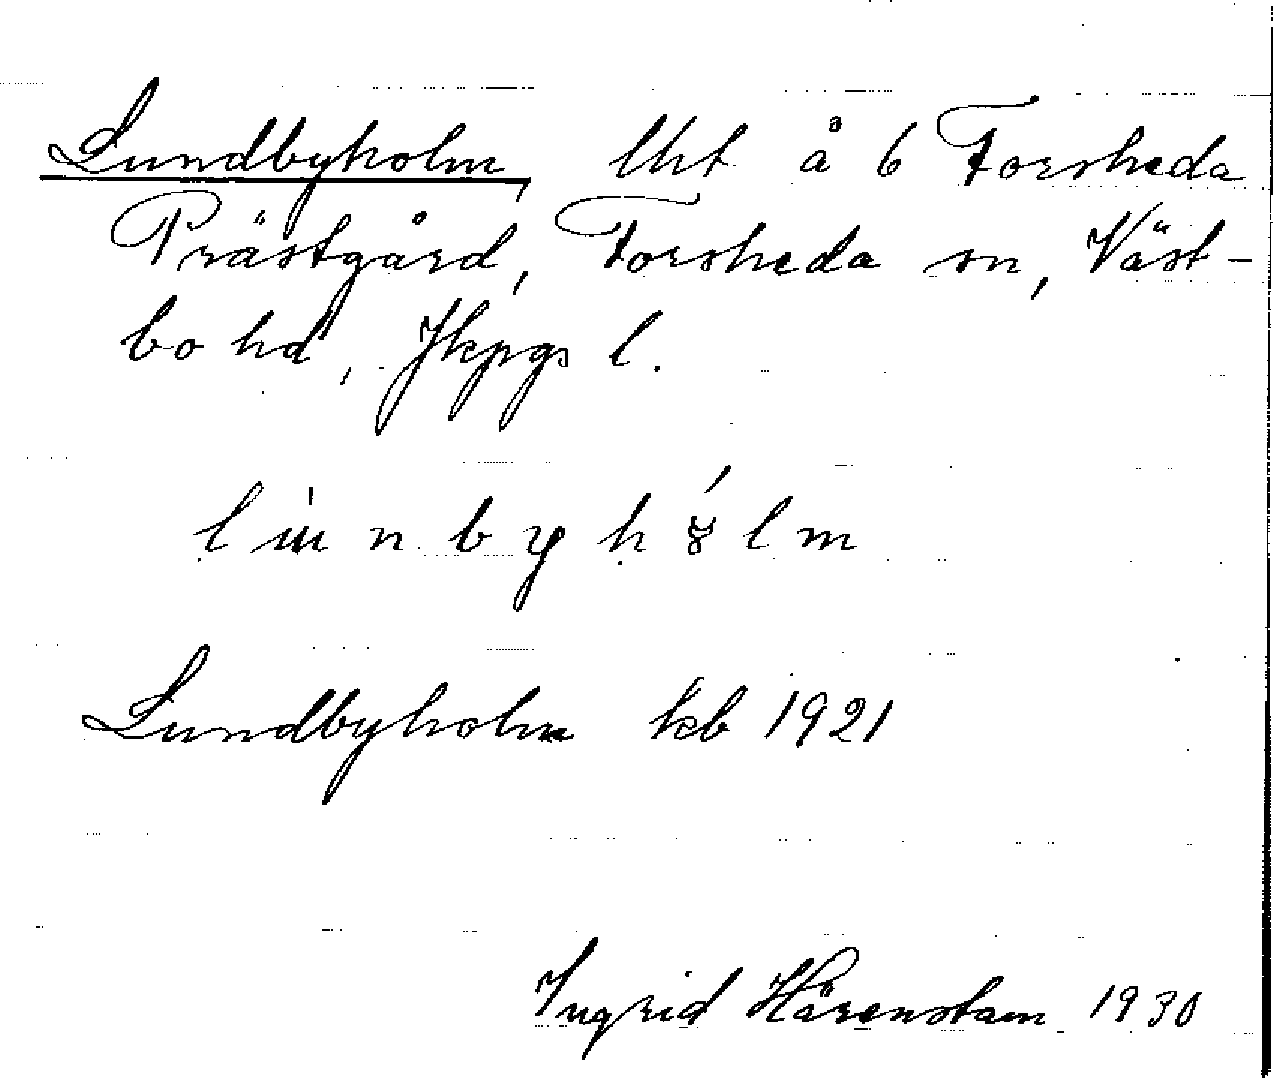 Lundbyholm, lht å 6 Forsheda
Prästgård, Forsheda sn, Väst-
bo hd, Jkpgs l.
Lundbyholm kb 1921
Ingrid Härenstam 1930